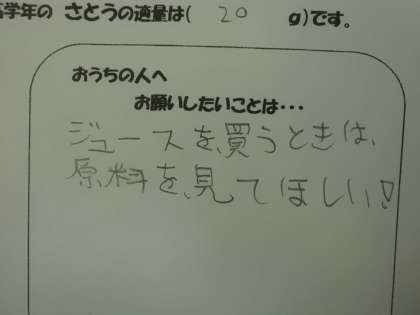 高学年の さとうの適量は( 20 g)です。
おうちの人へ
お願いしたいことは・・・
ジュースを買うときは、
原料を見てほしい!